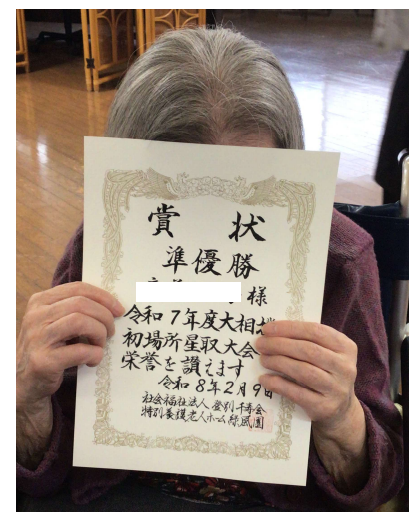 賞状
準優勝
様
令和7年度大相
初場所星取大会
栄誉を讃えます
令和8年2月9日
社会福祉法人 登別千寿会
特別養護老人ホーム緑風園